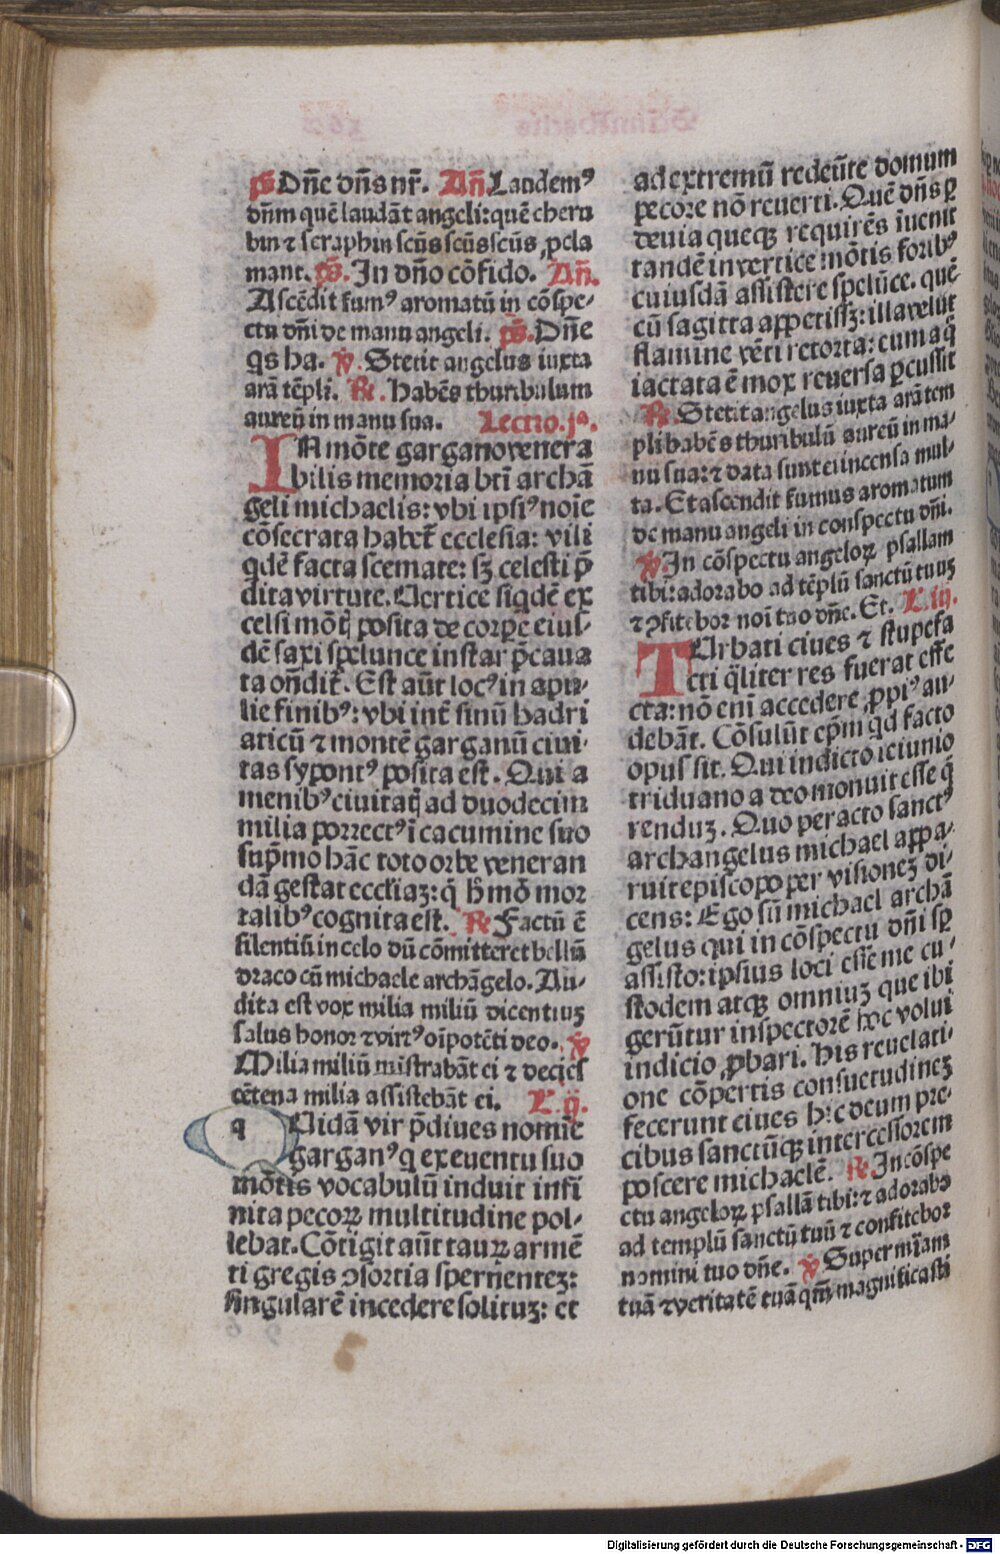 ps̄ Dn̄e dn̄s nr̄. Añ. Laudemꝰ
dn̄m quē laudāt angeli: quē cheru
bin ⁊ seraphin scūs scūs scūs ꝓcla
mant. ps̄. In dn̄o cōfido. Añ.
Ascēdit fumꝰ aromatū in cōspe⸗
ctu dn̄i de manu angeli. ps̄. Dn̄e
qs ha. ℣. Stetit angelus iuxta
arā tēpli. ℟. Habēs thuribulum
aureū in manu sua. Lectio. jª.
IN mōte gargano venera
bilis memoria bt̄i archā
geli michaelis: vbi ipsiꝰ noīe
cōsecrata habet̄ ecclesia: vili
qdē facta scemate: sꝫ celesti p̄
dita virtute. Uertice siqdē ex
celsi mōtꝭ posita de corpe eius⸗
dē saxi spelunce instar p̄caua
ta on̄dit̄. Est aūt locꝰ in apu⸗
lie finibꝰ: vbi int̄ sinū hadri
aticū ⁊ montē garganū ciui⸗
tas sypontꝰ posita est. Qui a
menibꝰ ciuitatꝭ ad duodecim
milia porrectꝰ ī cacumine suo
sup̄mo hāc toto orbe veneran
dā gestat eccliaꝫ: q̄ hͦ mō mor
talibꝰ cognita est. ℟. Factū ē
silentiū in celo dū cōmitteret bellū
draco cū michaele archāgelo. Au⸗
dita est vox milia miliū dicentiuꝫ
salus honor ⁊ virtꝰ oīpotēti deo. ℣
Milia miliū mistrabāt ei ⁊ decies
cētena milia assistebāt ei. L. ij.
q Uidā vir p̄diues nomīe
garganꝰ q ex euentu suo
mōtis vocabulū induit infi
nita pecorꝝ multitudine pol⸗
lebat. Cōtigit aūt taurꝝ armē
ti gregis ꝯsortia spernenteꝫ:
singularē incedere solituꝫ: et
ad extremū redeūte domum
pecore nō reuerti. Quē dn̄s ꝑ
deuia queqꝫ requirēs īuenit
tandē in vertice mōtis foribꝰ
cuiusdā assistere spelūce. quē
cū sagitta appetissꝫ: illa velut
flamine vēti retorta: cum a q̄
iactata ē mox reuersa ꝑcussit
℟. Stetit angelus iuxta arā tem
pli habēs thuribulū aureū in ma⸗
nu sua: ⁊ data sunt ei incensa mul⸗
ta. Et ascendit fumus aromatum
de manu angeli in conspectu dn̄i.
℣. In cōspectu angelorꝝ psallam
tibi: adorabo ad tēplū sanctū tuuꝫ
⁊ ꝯfitebor noī tuo dn̄e. Et. L. iij.
TUrbati ciues ⁊ stupefa
cti q̄liter res fuerat effe
cta: nō enī accedere ꝓpiꝰ au⸗
debāt. Cōsulūt ep̄m qd facto
opus sit. Qui indicto ieiunio
triduano a deo monuit esse q̄
renduꝫ. Quo peracto sanctꝰ
archangelus michael appa⸗
ruit episcopo per visioneꝫ di⸗
cens: Ego sū michael archā
gelus qui in cōspectu dn̄i sꝑ
assisto: ipsius loci esse me cu⸗
stodem atqꝫ omniuꝫ que ibi
gerūtur inspectorē hoc volui
indicio ꝓbari. His reuelati⸗
one cōpertis consuetudineꝫ
fecerunt ciues hic deum pre⸗
cibus sanctūqꝫ intercessorem
poscere michaelē. ℟. In cōspe
ctu angelorꝝ psallā tibi: ⁊ adorabo
ad templū sanctū tuū ⁊ confitebor
nomini tuo dn̄e. ℣. Super mīam
tuā ⁊ veritatē tuā qm̄ magnificasti
Digitalisierung gefördert durch die Deutsche Forschungsgemeinschaft - DFG